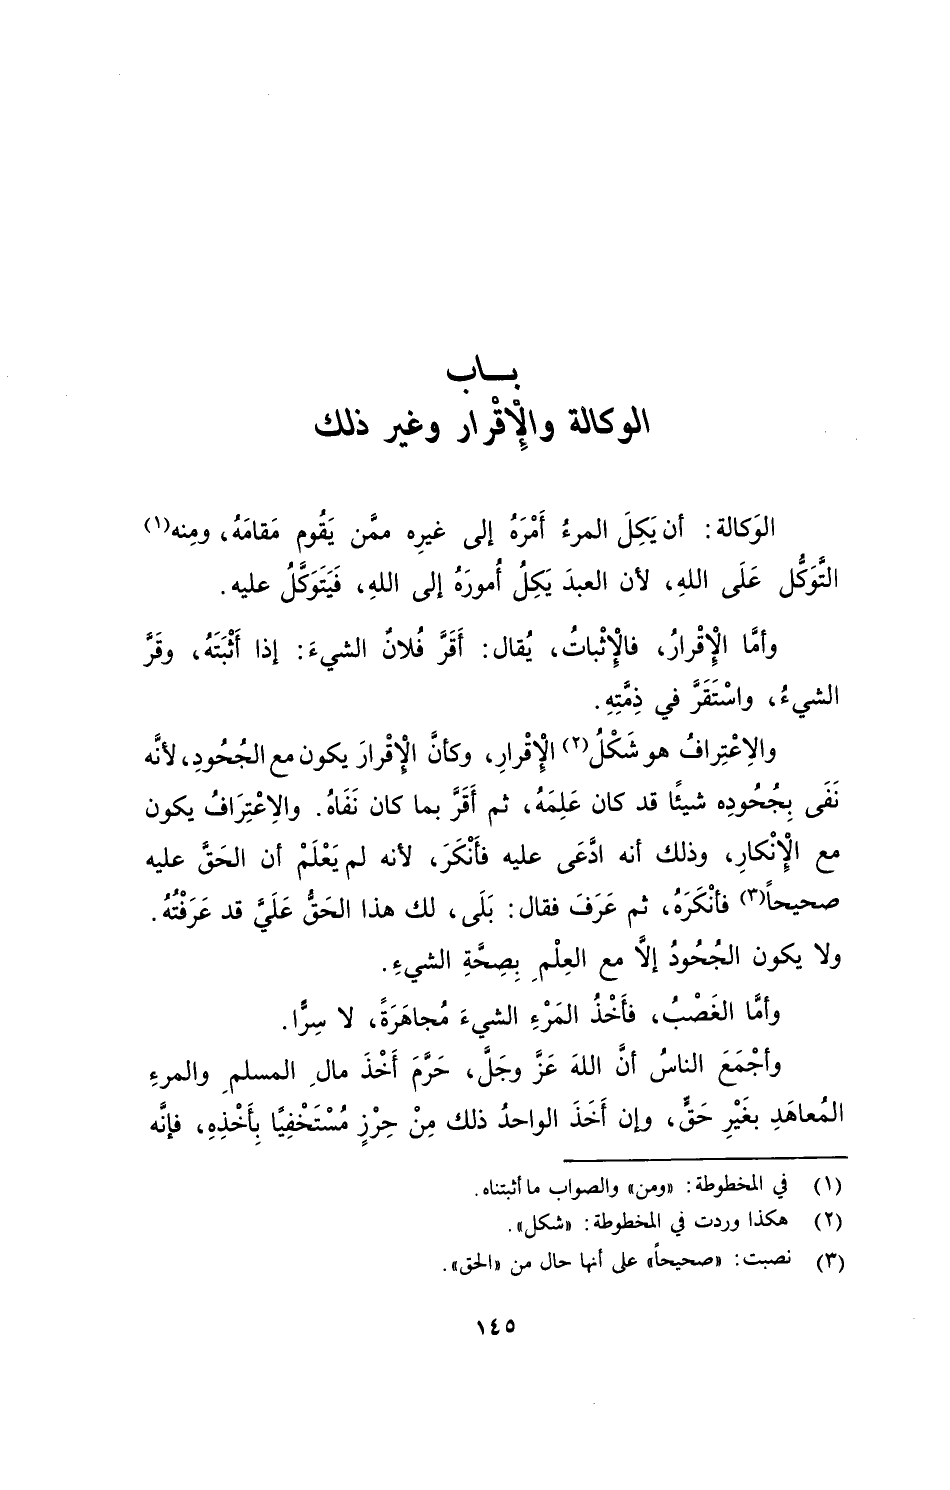 بـــاب
الوكالة والإِقْرار وغير ذلك
الوَكالة: أن يَكِلَ المرءُ أَمْرَهُ إلى غيرِه ممَّن يَقُوم مَقامَهُ، ومِنه(١)
التَّوَكُّل عَلَى اللهِ، لأن العبدَ يَكِلُ أُمورَهُ إلى اللهِ، فَيَتَوَكَّلُ عليه.
وأمَّا الإِقْرارُ، فالإِثْباتُ، يُقال: أَقَرَّ فُلانٌ الشيءَ: إذا أَثْبَتَهُ، وقَرَّ
الشيءُ، واسْتَقَرَّ في ذِمَّتِهِ.
والِاعْتِرافُ هو شَكْلُ(٢) الإِقْرارِ، وكأنَّ الإِقْرارَ يكون مع الجُحُودِ، لأنه
نَفَى بِجُحُودِه شيئًا قد كان عَلِمَهُ، ثم أَقَرَّ بما كان نَفَاهُ. والِاعْتِرَافُ يكون
مع الإِنْكارِ، وذلك أنه ادَّعَى عليه فأَنْكَرَ، لأنه لم يَعْلَمْ أن الحَقَّ عليه
صحيحاً(٣) فأنْكَرَهُ، ثم عَرَفَ فقال: بَلَى، لك هذا الحَقُّ عَلَيَّ قد عَرَفْتُهُ.
ولا يكون الجُحُودُ إلَّا مع العِلْمِ بِصِحَّةِ الشيءِ.
وأمَّا الغَصْبُ، فأَخْذُ المَرْءِ الشيءَ مُجاهَرَةً، لا سِرًّا.
وأجْمَعَ الناسُ أنَّ اللهَ عَزَّ وجَلَّ، حَرَّمَ أَخْذَ مالِ المسلمِ والمرءِ
المُعاهَدِ بغَيْرِ حَقٍّ، وإن أَخَذَ الواحدُ ذلك مِنْ حِرْزٍ مُسْتَخْفِيًا بِأَخْذِهِ، فإنَّه
(١) في المخطوطة: «ومن» والصواب ما أثبتناه.
(٢) هكذا وردت في المخطوطة: «شكل».
(٣) نصبت: «صحيحاً» على أنها حال من «الحق».
١٤٥